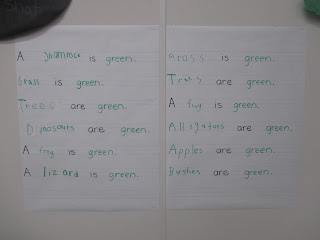 A shamrock is green.
Grass is green.
Trees are green.
Dinosaurs are green.
A frog is green.
A lizard is green.
Grass is green.
Trees are green.
A frog is green.
Alligators are green.
Apples are green.
Bushes are green.